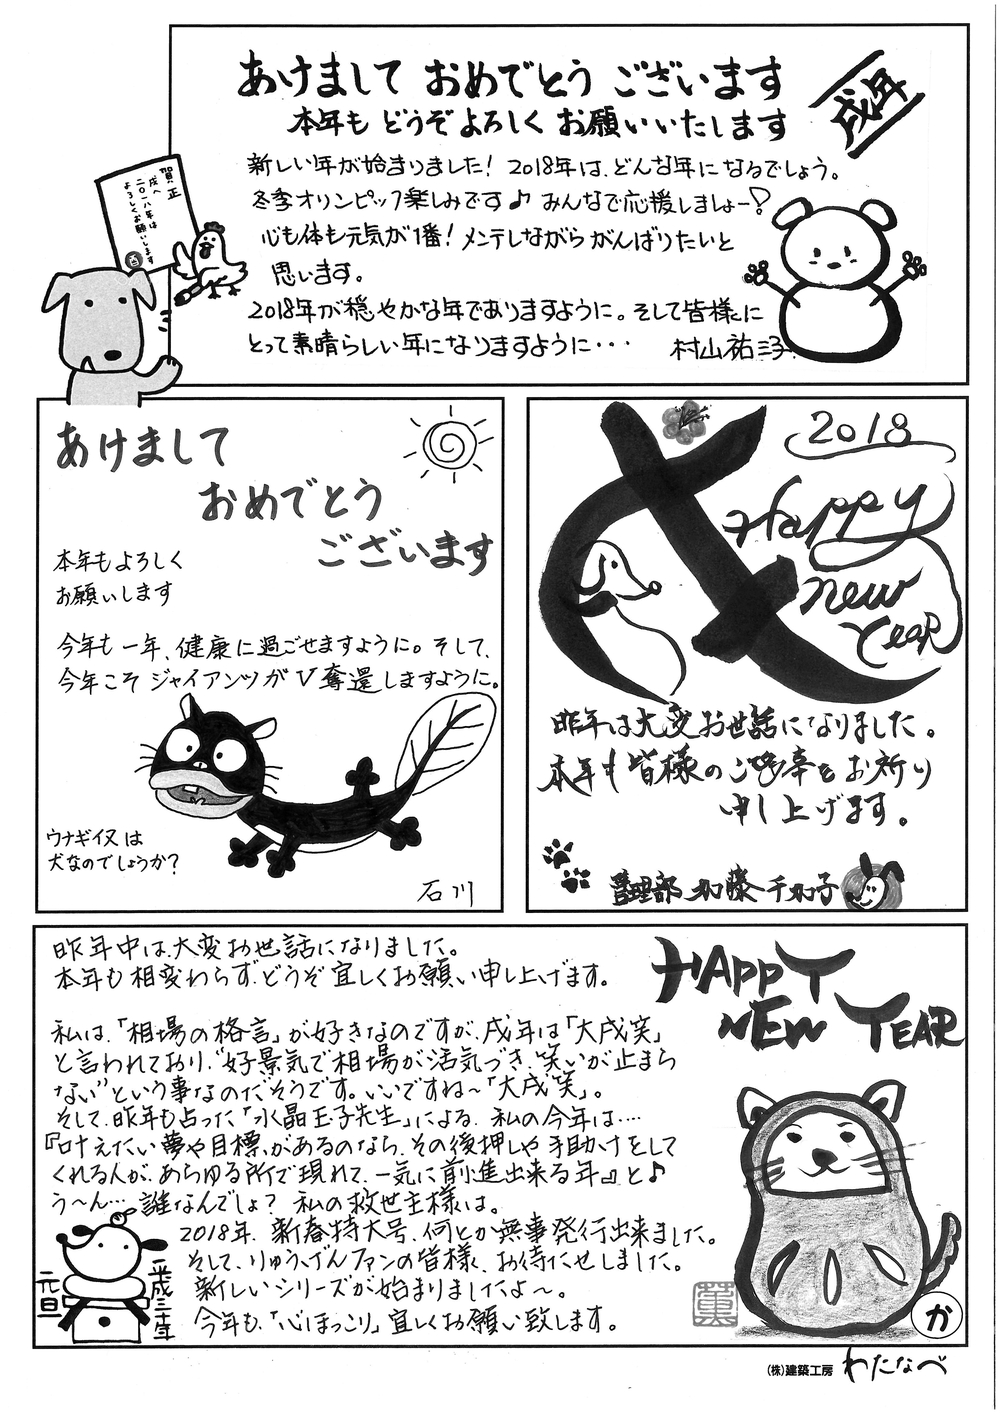 あけまして おめでとう ございます
本年も どうぞよろしく お願いいたします
戌年
新しい年が始まりました! 2018年は、どんな年になるでしょう。
冬季オリンピック楽しみです♪ みんなで応援しましょー!
心も体も元気が1番! メンテしながら がんばりたいと
思います。
2018年が穏やかな年でありますように。そして皆様に
とって素晴らしい年になりますように・・・ 村山祐三子
賀正
戌へ
二〇一八年は
よろしくお願いします
酉
あけまして
おめでとう
ございます
本年もよろしく
お願いします
今年も一年、健康に過ごせますように。そして、
今年こそ ジャイアンツがV奪還しますように。
ウナギイヌは
犬なのでしょうか?
石川
2018
Happy
new
Year
昨年は大変お世話になりました。
本年も皆様のご多幸をお祈り
申し上げます。
管理部 加藤千加子
昨年中は、大変お世話になりました。
本年も相変わらず、どうぞ宜しくお願い申し上げます。
HAPPY
NEW YEAR
私は、「相場の格言」が好きなのですが、戌年は「大戌笑」
と言われており、"好景気で相場が活気づき、笑いが止まら
ない"という事なのだそうです。いいですね~「大戌笑」。
そして、昨年も占った「水晶玉子先生」による、私の今年は・・・・
『叶えたい夢や目標があるのなら、その後押しや手助けをして
くれる人が、あらゆる所で現れて、一気に前進出来る年』と♪
う~ん・・・誰なんでしょ? 私の救世主様は。
2018年、新春特大号、何とか無事発行出来ました。
そして、りゅう、げんファンの皆様、お待たせしました。
新しいシリーズが始まりましたよ~。
今年も、「心ほっこり」宜しくお願い致します。
平成三十年
元旦
薫
か
(株)建築工房 わたなべ